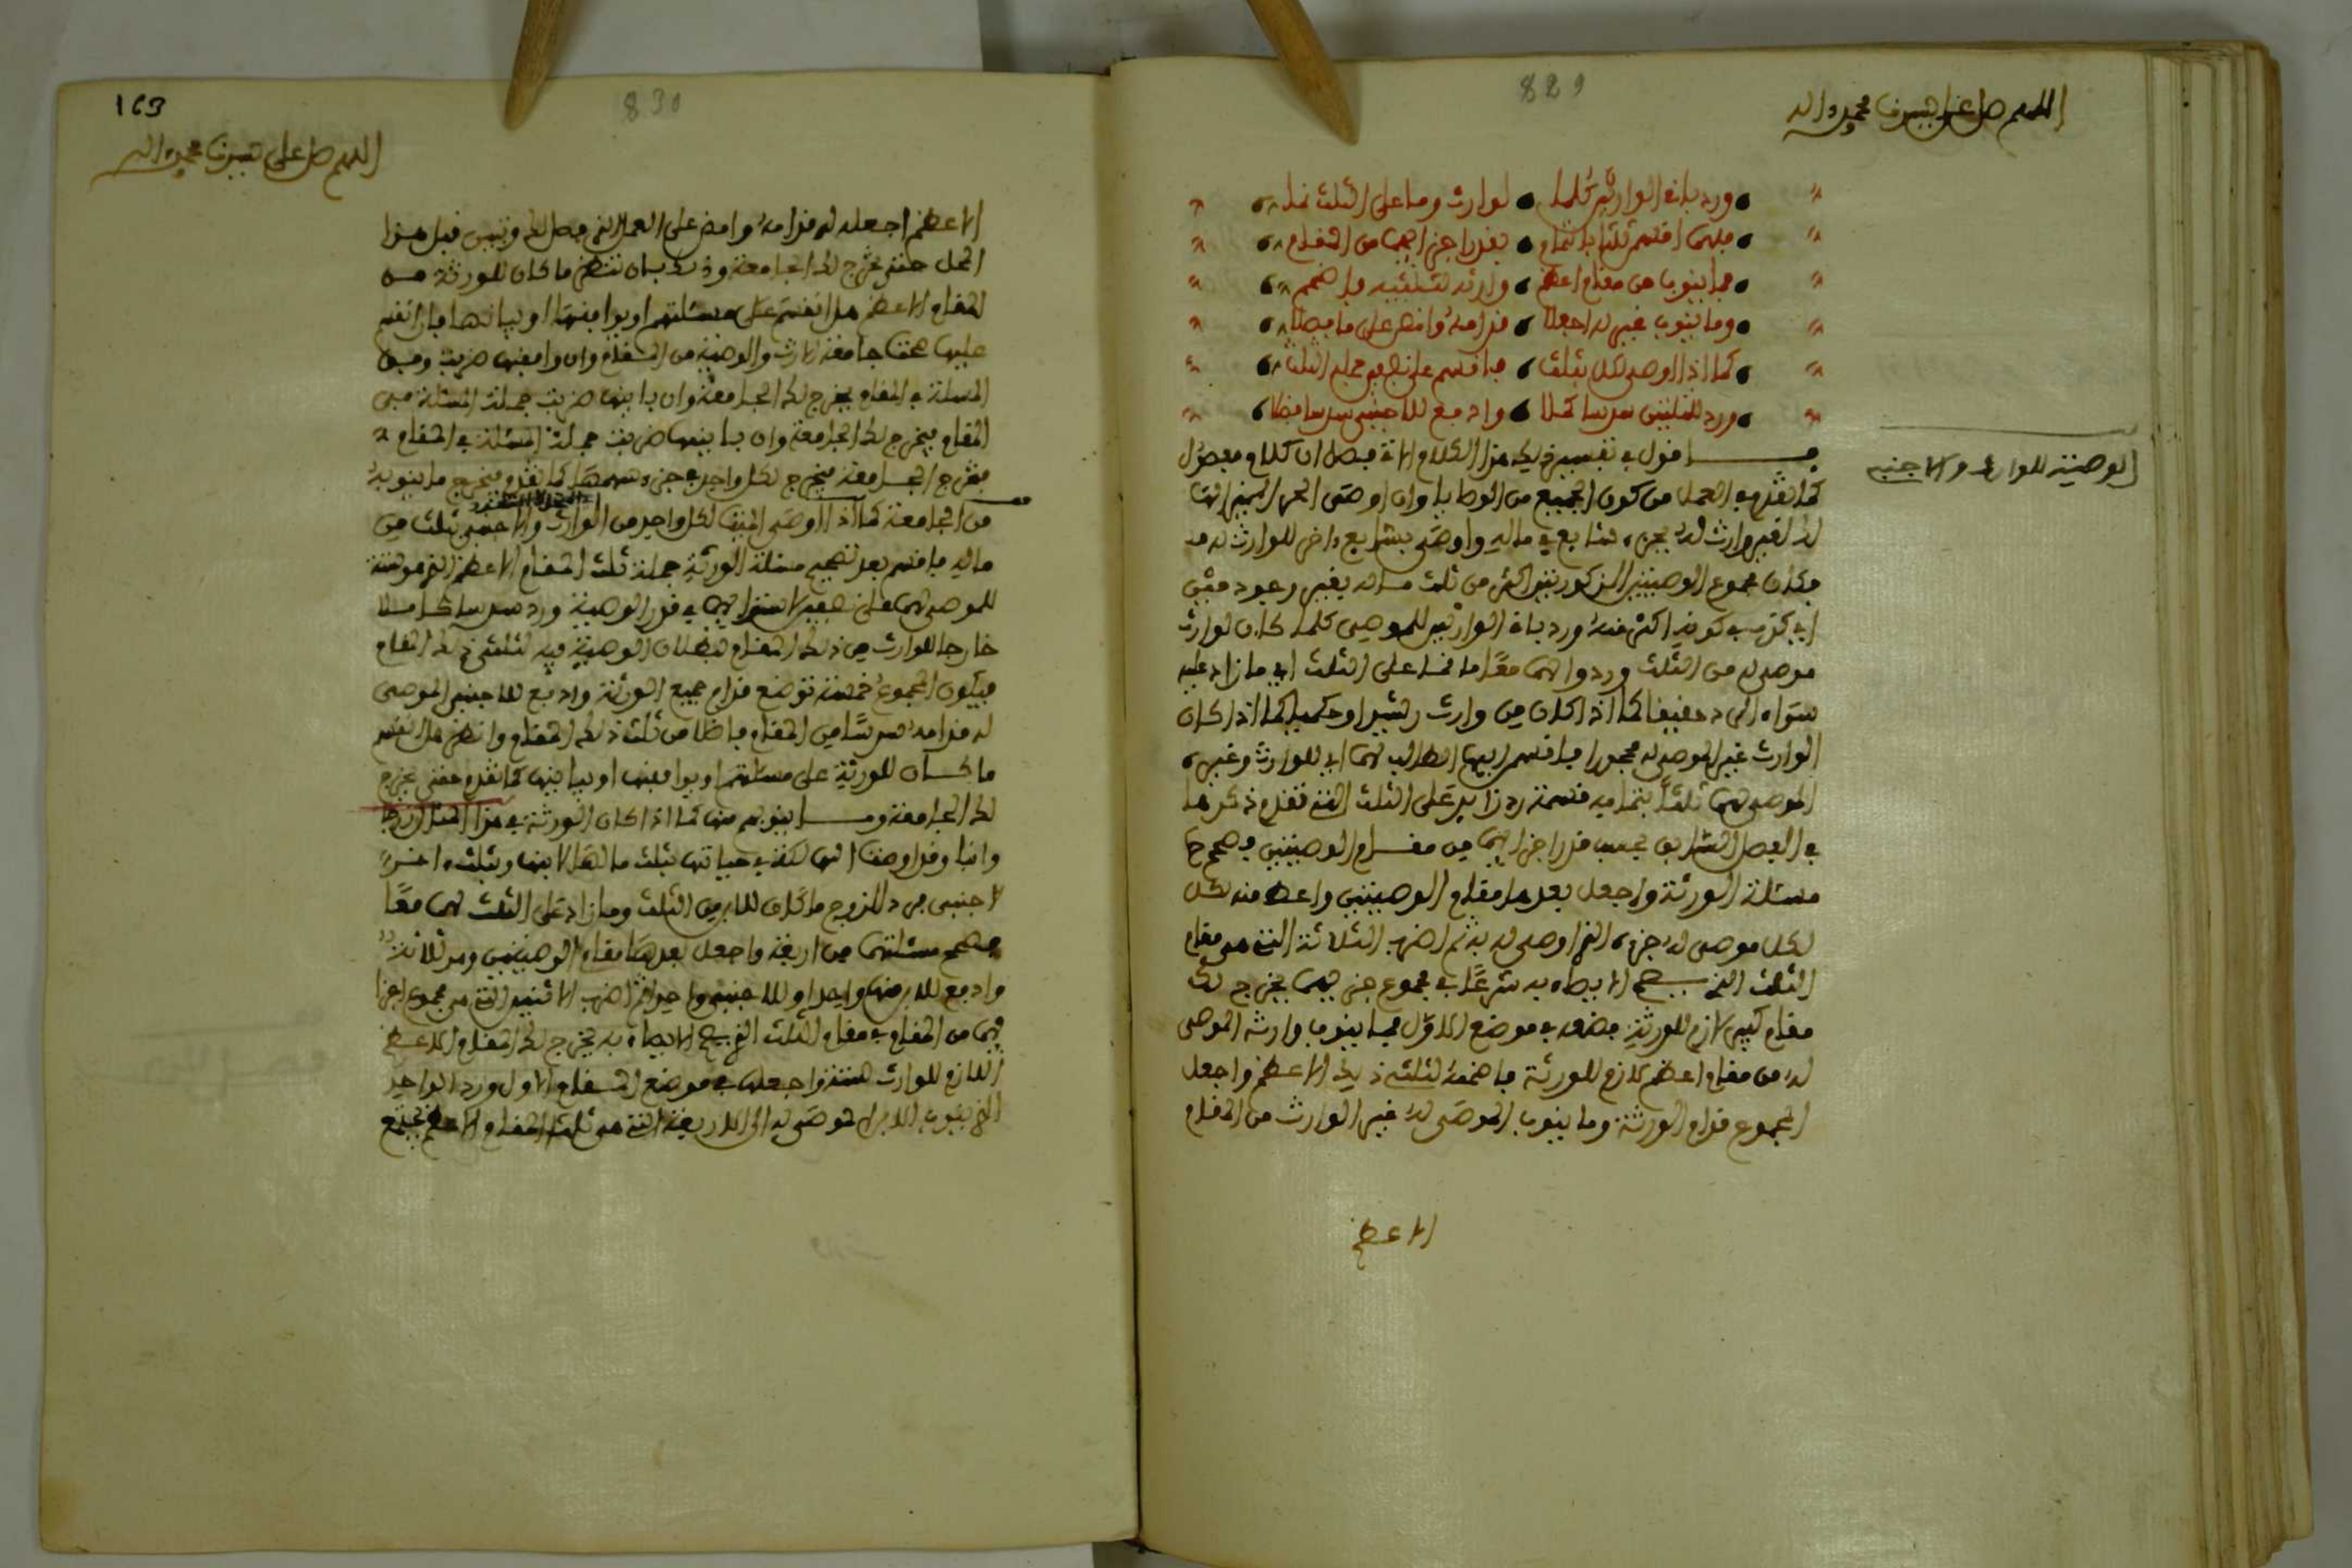 829
اللهم صل على نبينا محمد واله
ورد باقي الوارثين كلما لوارث وما على الثلث نما
فلهما اقسم ثلثا بالتمام بقدر اجزائهما من المقام
فما ينوب من مقام اعظم وارثه لثلثيه فاضمم
وما ينوب غيره اجعلا قدامه وانظر على ما فصلا
كما اذا اوصى لكل بثلث فاقسم على نصفين جملة الثلث
ورد للثلثين سدسا كملا وادفع للاجنبي سدسا فضلا
الوصية للوارث والاجنبي
اقول في تفسير ذلك هذا الكلام الاتي فصل ان كلام مفصول
كما تقدم في العمل من كون الجميع من الوصايا وان اوصى الهالك
له لغير وارث له بجزء شايع في ماله واوصى بشايع اخر للوارث له منه
فكان مجموع الوصيتين المذكورتين اكثر من ثلث ماله بغير
اي في كونه اكثر منه ورد باقي الوارثين للموصي كلما كان لوارث
موصى له من الثلث وردوا لهما معا ما نما على الثلث اي ما زاد عليه
سواء الرد حقيقيا كما اذا كان من وارث رشيد او حكميا كما اذا كان
الوارث غير الموصى له محجورا فاقسم ايها الطالب لهما اي للوارث وغيره
الموصى لهما ثلثا بتمامه قسمة رد زايد على الثلث التي تقدم ذكرها
في الفصل السابق بحسب قدر اجزائهما من مقام الوصيتين فصحح
مسئلة الورثة واجعل بعدها مقام الوصيتين واعط منه لكل
لكل موصى له جزءه الذي اوصى له به ثم اضرب الثلاثة التي هي مقام
الثلث الذي يصح الايصاء به شرعا في مجموع جزءيهما يخرج لك
مقام كبير لازم للورثة فضعه في موضع الاول فما ينوب وارثه الموصى
له من مقام اعظم لازم للورثة فاضمه لثلثي ذلك الاعظم واجعل
المجموع قدام الورثة وما ينوب الموصى له غير الوارث من المقام
الاعظم
163
830
اللهم صل على نبينا محمد واله
الاعظم اجعله له قدامه وامض على العمل الذي فصل لك وتبين قبل هذا
المحل حتى تخرج لك الجامعة وذلك بان تنظر ما كان للورثة من
المقام الاعظم هل انقسم على مسئلتهم او يوافقها او يباينها فان انقسم
عليها صحتا جامعة الارث والوصية من المقام وان وافقها ضربت وفق
المسئلة في المقام يخرج لك الجامعة وان باينها ضربت جملة المسئلة في
المقام يخرج لك الجامعة وان باينها ضربت جملة المسئلة في المقام
فتخرج الجامعة فيخرج لكل واحد جزء سهمها كما تقدم فيخرج ما ينوبه
من الجامعة كما اذا اوصى الميت لكل واحد من الوارث والاجنبي بثلث من
ماله فاقسم بعد تصحيح مسئلة الورثة جملة ثلث المقام الاعظم الذي هو ستة
للموصى لهما على نصفين لاستوائهما في قدر الوصية ورد سدسا كاملا
خارجا للوارث من ذلك المقام لبطلان الوصية فيه لثلثي ذلك المقام
فيكون المجموع خمسة توضع قدام جميع الورثة وادفع للاجنبي الموصى
له قدامه سدسا من المقام فاضلا من ثلث ذلك المقام وانظر هل انقسم
ما كان للورثة على مسئلتهم او يوافقها او يباينها كما تقدم حتى يخرج
لك الجامعة وما ينوبهم منها كما اذا كان الورثة في هذا المثال زوجا
وابنا وقد اوصت الهالكة في حياتها بثلث مالها لابنها وبثلث اخر
لاجنبي فرد الزوج ما كان للابن من الثلث وما زاد على الثلث لهما معا
فصحح مسئلتها من اربعة واجعل بعدها مقام الوصيتين وهو ثلاثة
وادفع للابن منها واحدا وللاجنبي واحدا ثم اضرب الاثنين التي هي مجموع اجزا
يهما من المقام في مقام الثلث الذي يصح الايصاء به يخرج لك المقام الاعظم
اللازم للوارث ستة واجعلها في موضع المقام الاول ورد الواحد
الذي ينوب الابن الموصى له الى الاربعة التي هي ثلثا المقام الاعظم يجتمع